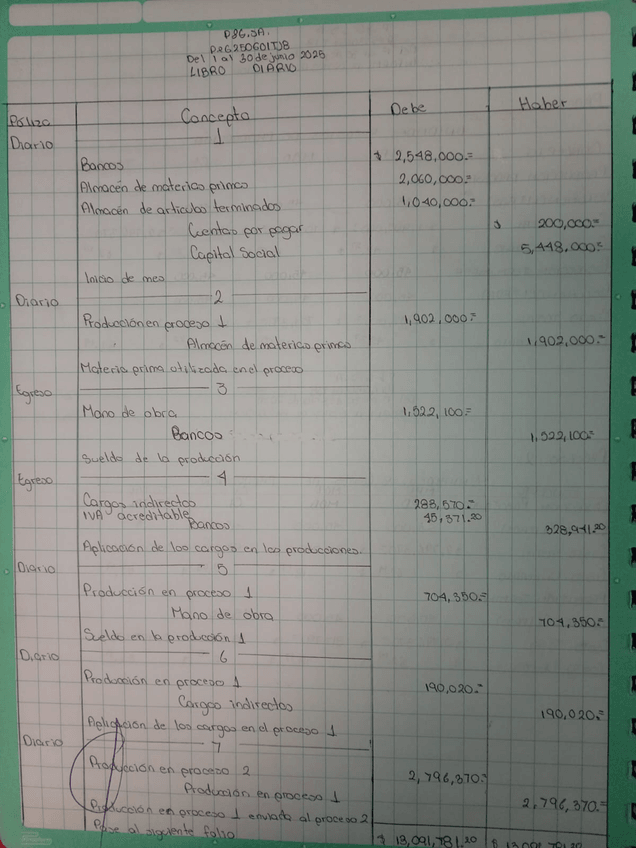 P86.SA.
PRG250601TDB
Del 1 al 30 de junio 2025
LIBRO DIARIO
Póliza Concepto Debe Haber
Diario 1
Bancos $ 2,548,000.=
Almacén de materias primas 2,060,000.=
Almacén de artículos terminados 1,040,000.=
Cuentas por pagar $ 200,000.=
Capital Social 5,448,000.=
Inicio de mes
Diario 2
Producción en proceso 1 1,902,000.=
Almacén de materias primas 1,902,000.=
Materia prima utilizada en el proceso
Egreso 3
Mano de obra 1,522,100.=
Bancos 1,522,100.=
Sueldo de la producción
Egreso 4
Cargos indirectos 283,570.=
IVA acreditable 45,371.20
Bancos 328,941.20
Aplicación de los cargos en las producciones.
Diario 5
Producción en proceso 1 704,350.=
Mano de obra 704,350.=
Sueldo en la producción 1
Diario 6
Producción en proceso 1 190,020.=
Cargos indirectos 190,020.=
Aplicación de los cargos en el proceso 1
Diario 7
Producción en proceso 2 2,796,370.=
Producción en proceso 1 2,796,370.=
Producción en proceso 1 enviada al proceso 2
Pase al siguiente folio $ 13,091,781.20 $